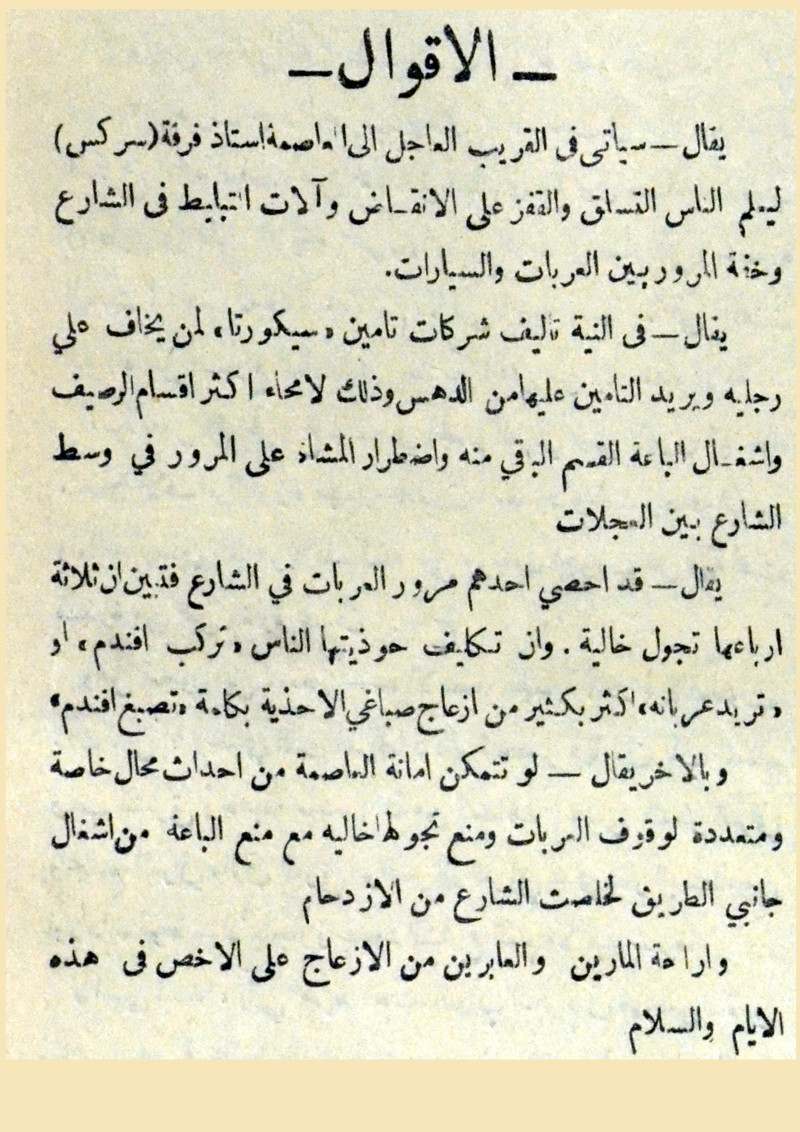 — الاقوال —
يقال — سياتى فى القريب العاجل الى العاصمة استاذ فرقة (سركس)
ليعلم الناس التسلق والقفز على الانقاض وآلات التبليط فى الشارع
وخفة المرور بين العربات والسيارات.
يقال — فى النية تاليف شركات تامين «سيكورتا» لمن يخاف علي
رجليه ويريد التامين عليها من الدهس وذلك لامحاء اكثر اقسام الرصيف
واشغال الباعة القسم الباقي منه واضطرار المشاة على المرور في وسط
الشارع بين العجلات
يقال — قد احصي احدهم مرور العربات في الشارع فتبين ان ثلاثة
ارباعها تجول خالية . وان تكليف حوذيتها الناس «تركب افندم» او
«تريد عربانه» اكثر بكثير من ازعاج صباغي الاحذية بكلمة «تصبغ افندم»
وبالاخر يقال — لو تتمكن امانة العاصمة من احداث محال خاصة
ومتعددة لوقوف العربات ومنع تجولها خاليه مع منع الباعة من اشغال
جانبي الطريق لخلصت الشارع من الازدحام
واراحة المارين والعابرين من الازعاج على الاخص فى هذه
الايام والسلام